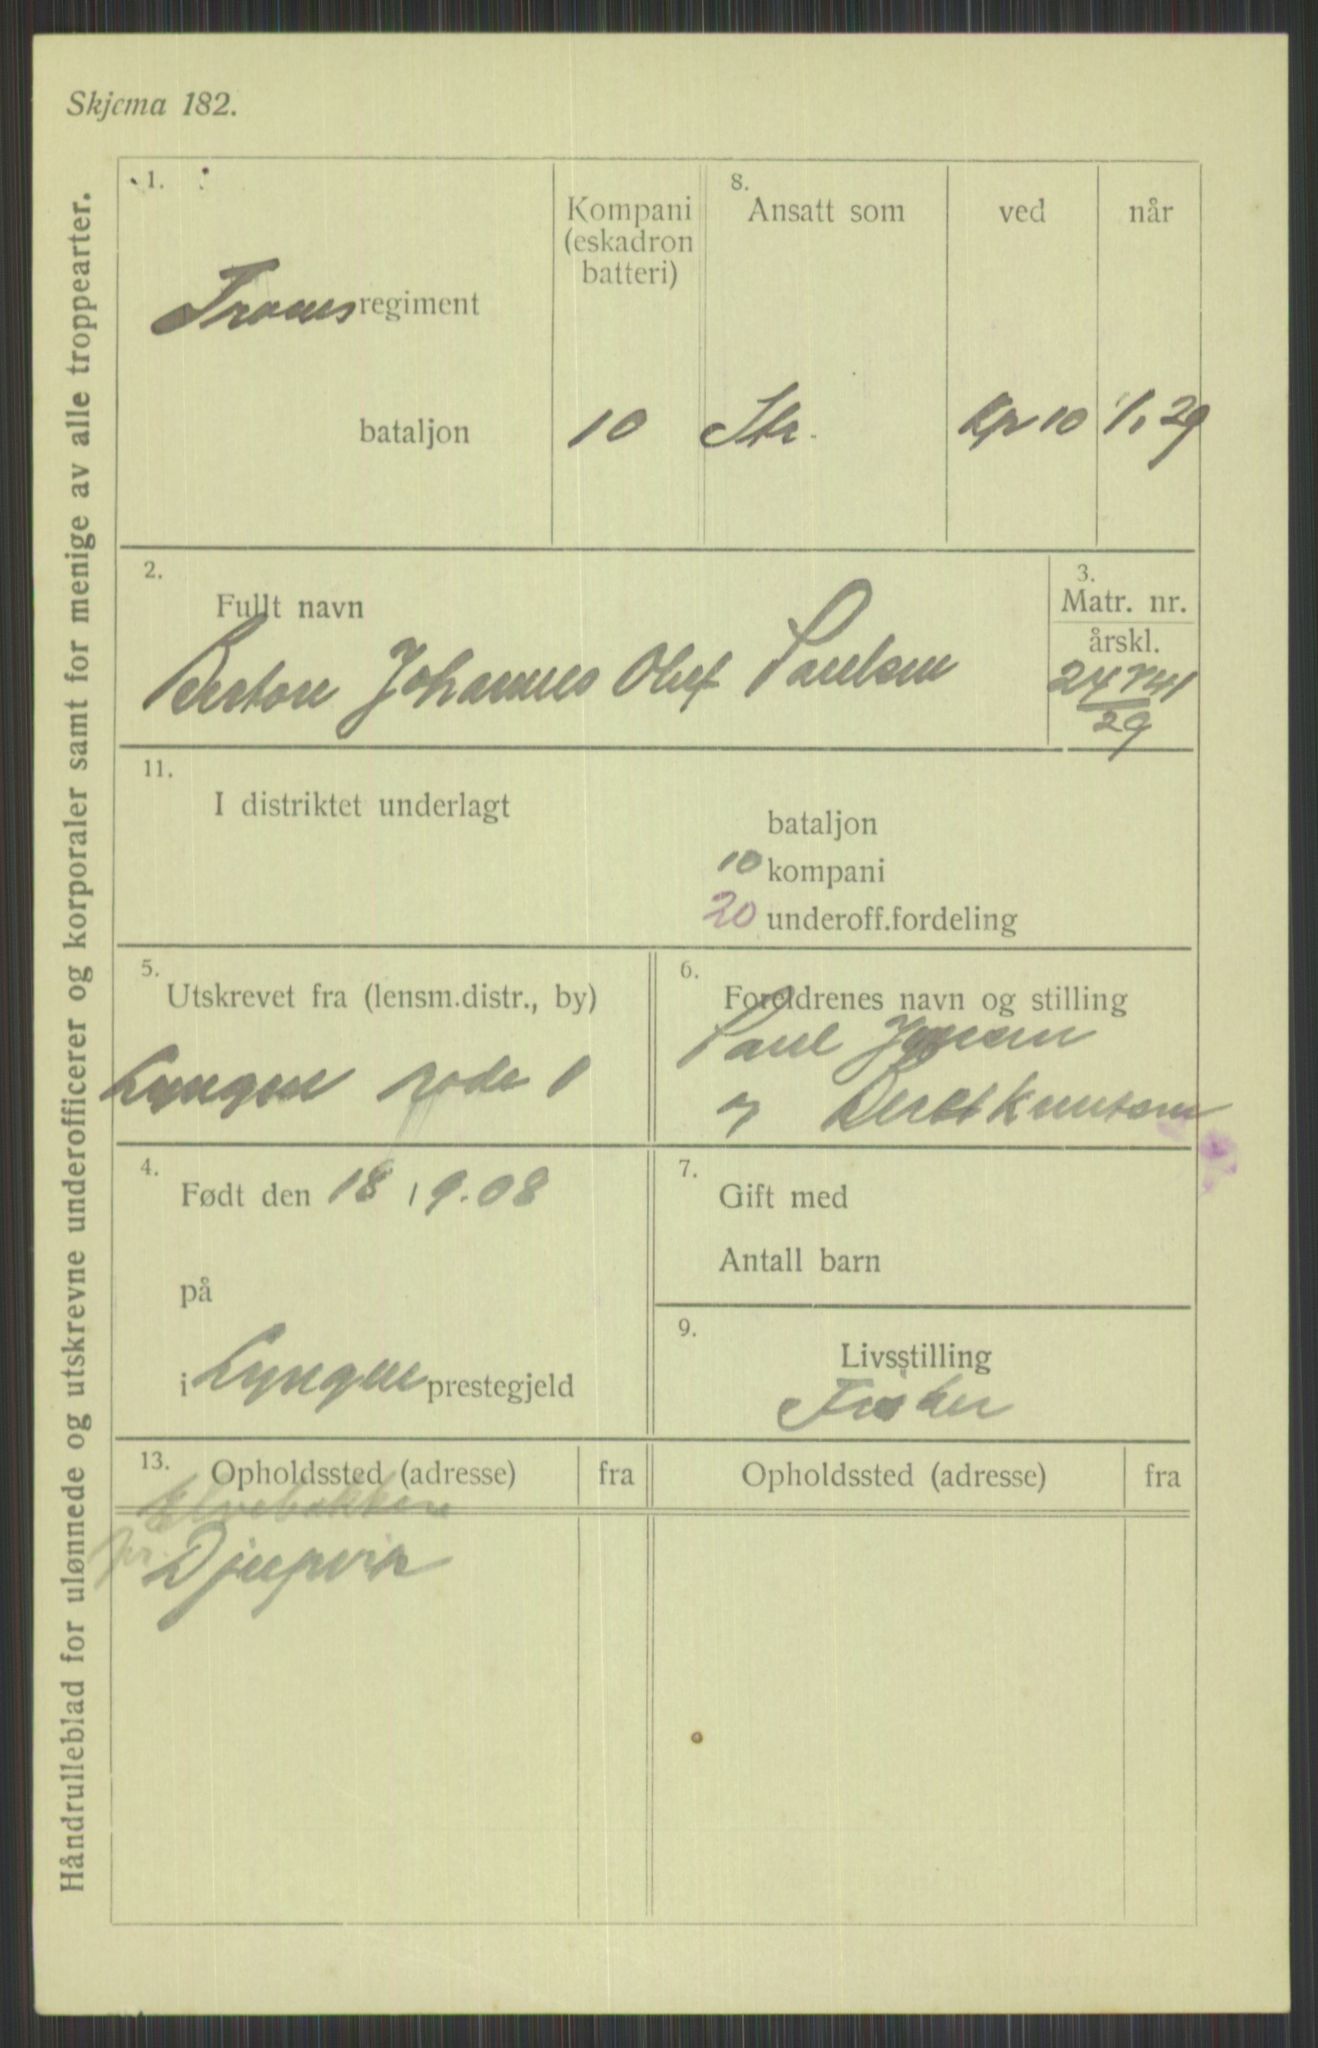 Skjema 182.
Håndrulleblad for ulønnede og utskrevne underofficerer og korporaler samt for menige av alle troppearter.
1.
Troms regiment
bataljon
Kompani
(eskadron
batteri)
10
8.
Ansatt som
Str.
ved
Kp 10
når
1/1 29
2.
Fullt navn
Berton Johannes Oluf Paulsen
3.
Matr. nr.
årskl.
24741
29
11.
I distriktet underlagt
bataljon
10 kompani
20 underoff.fordeling
5.
Utskrevet fra (lensm.distr., by)
Lyngen rode 1
6.
Foreldrenes navn og stilling
Paul
og Berit Knutsen
4.
Født den 18/9.08
på
i Lyngen prestegjeld
7.
Gift med
Antall barn
9.
Livsstilling
Fisker
13.
Opholdssted (adresse) fra
Elvebakken
pr. Djupvik
Opholdssted (adresse) fra